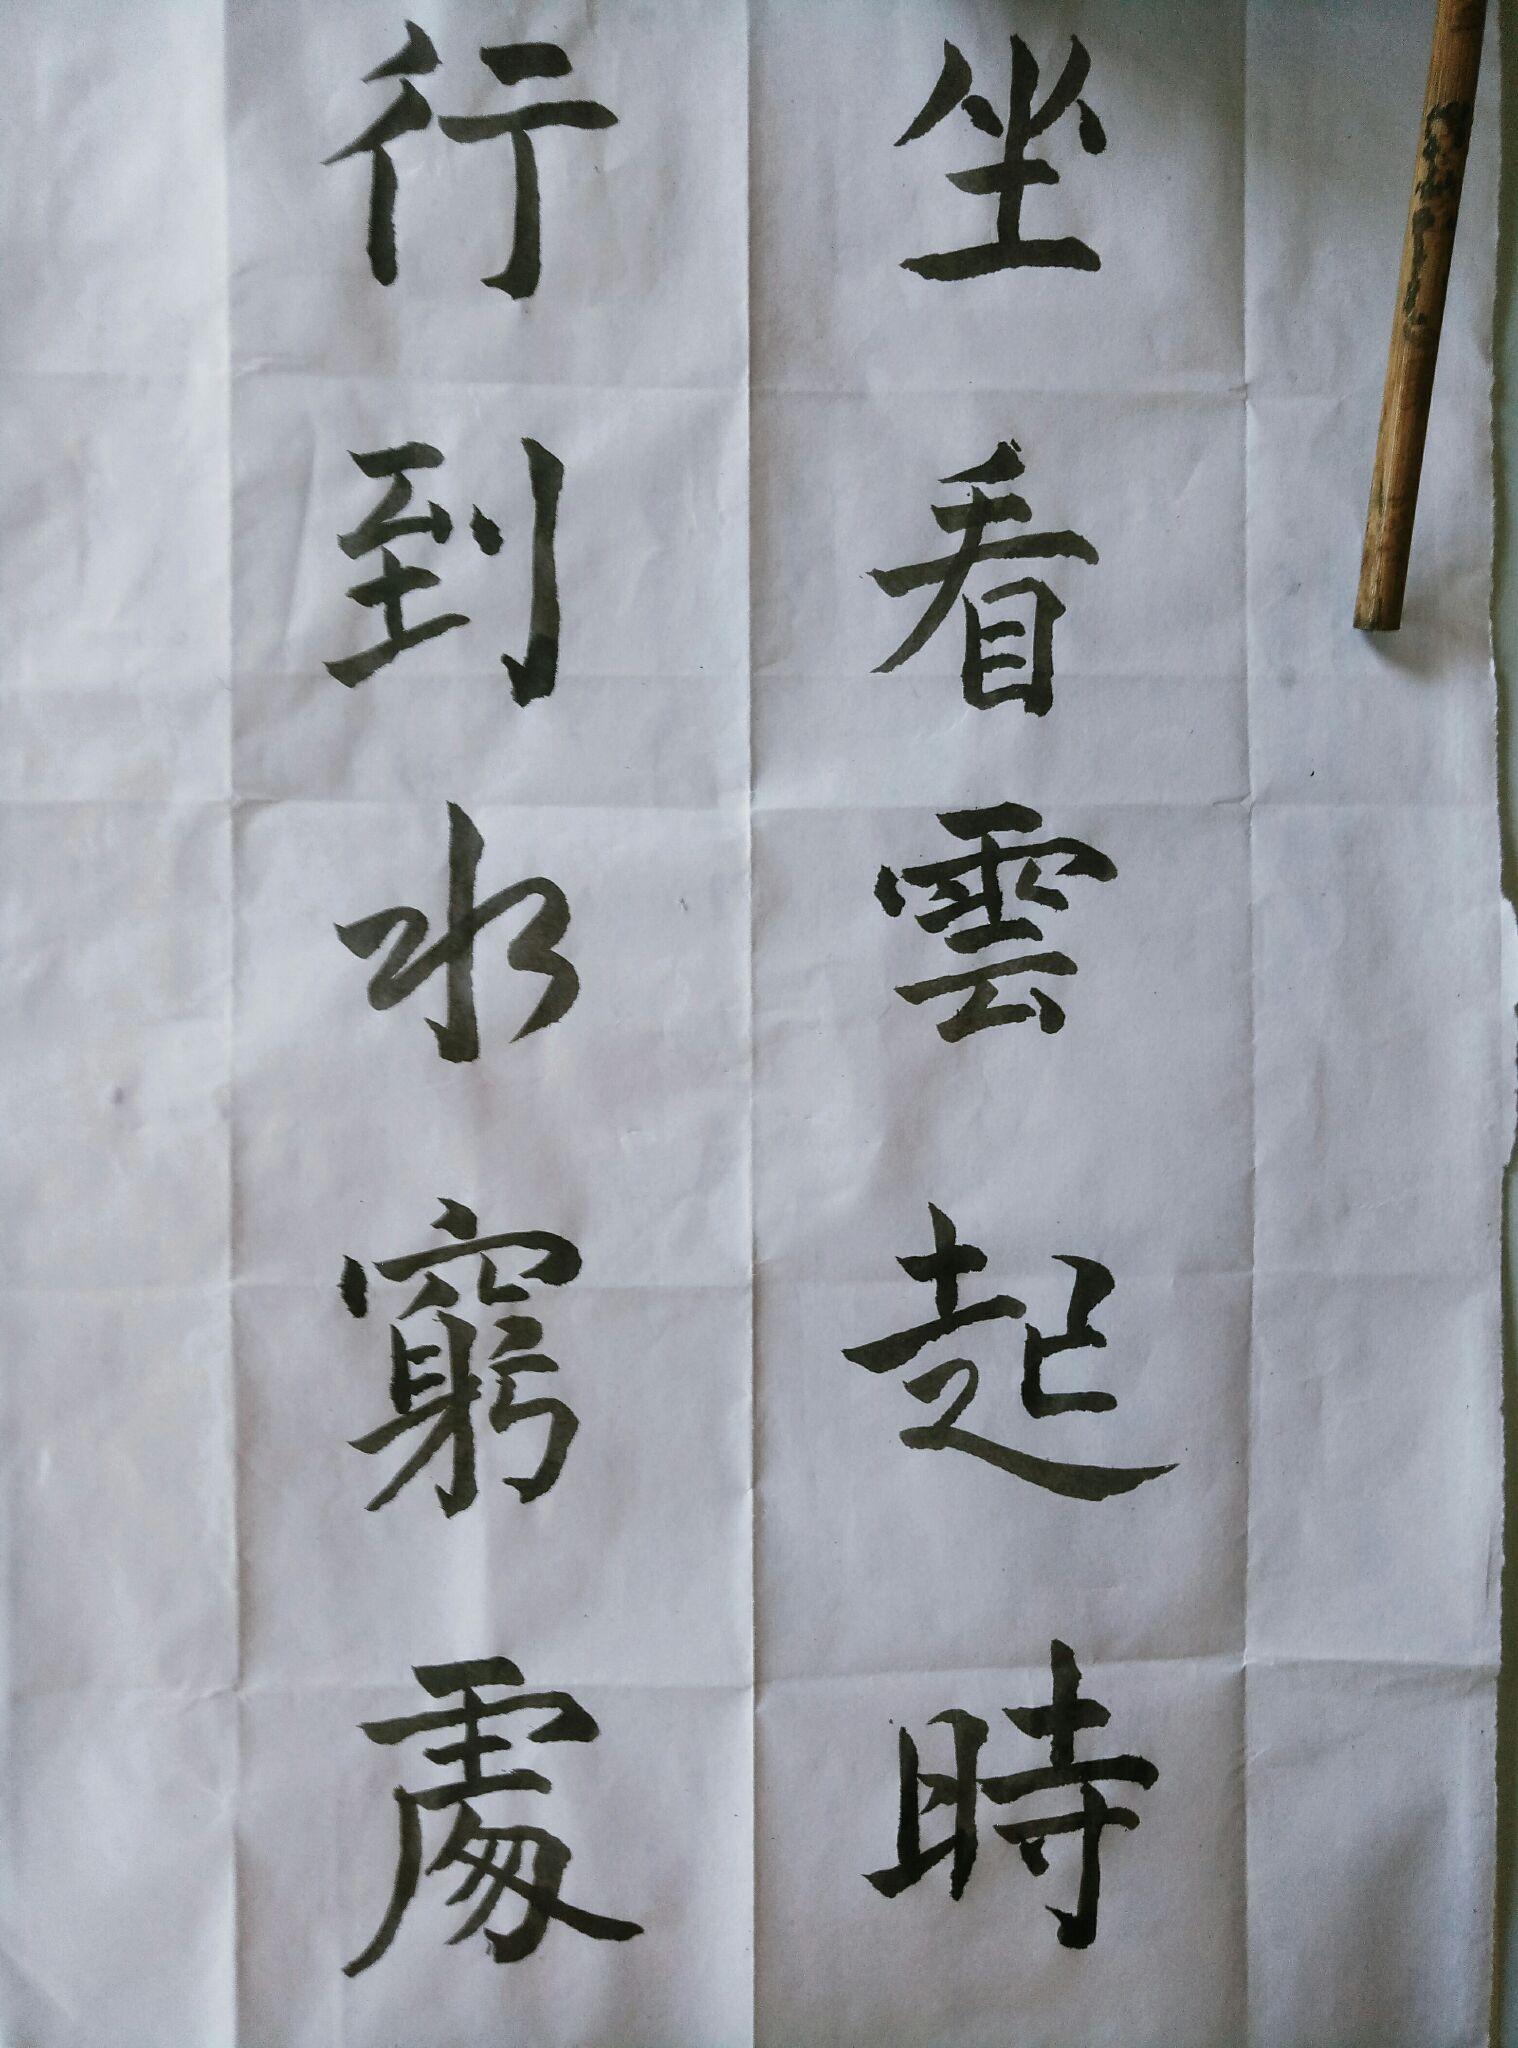 坐看雲起時
行到水窮處